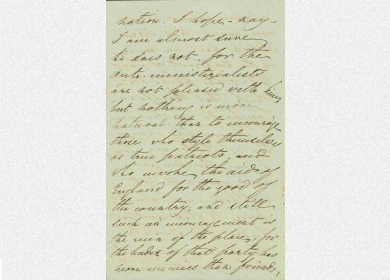 nation. I hope - nay
I am almost sure
he does not - for the
anti-ministerialists
are not pleased with him,
but nothing is more
natural than to encourage
those who style themselves
as true patriots, and
who invoke the aid of
England for the good of
the country, and still
such an encouragement is
the ruin of the place, for
the leader of that party has
more enemies than friends,